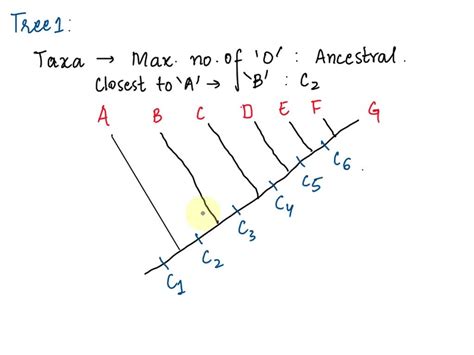 Tree 1:
Taxa → Max. no. of '0' : Ancestral.
Closest to 'A' → 'B' : C2
A B C D E F G
C1 C2 C3 C4 C5 C6